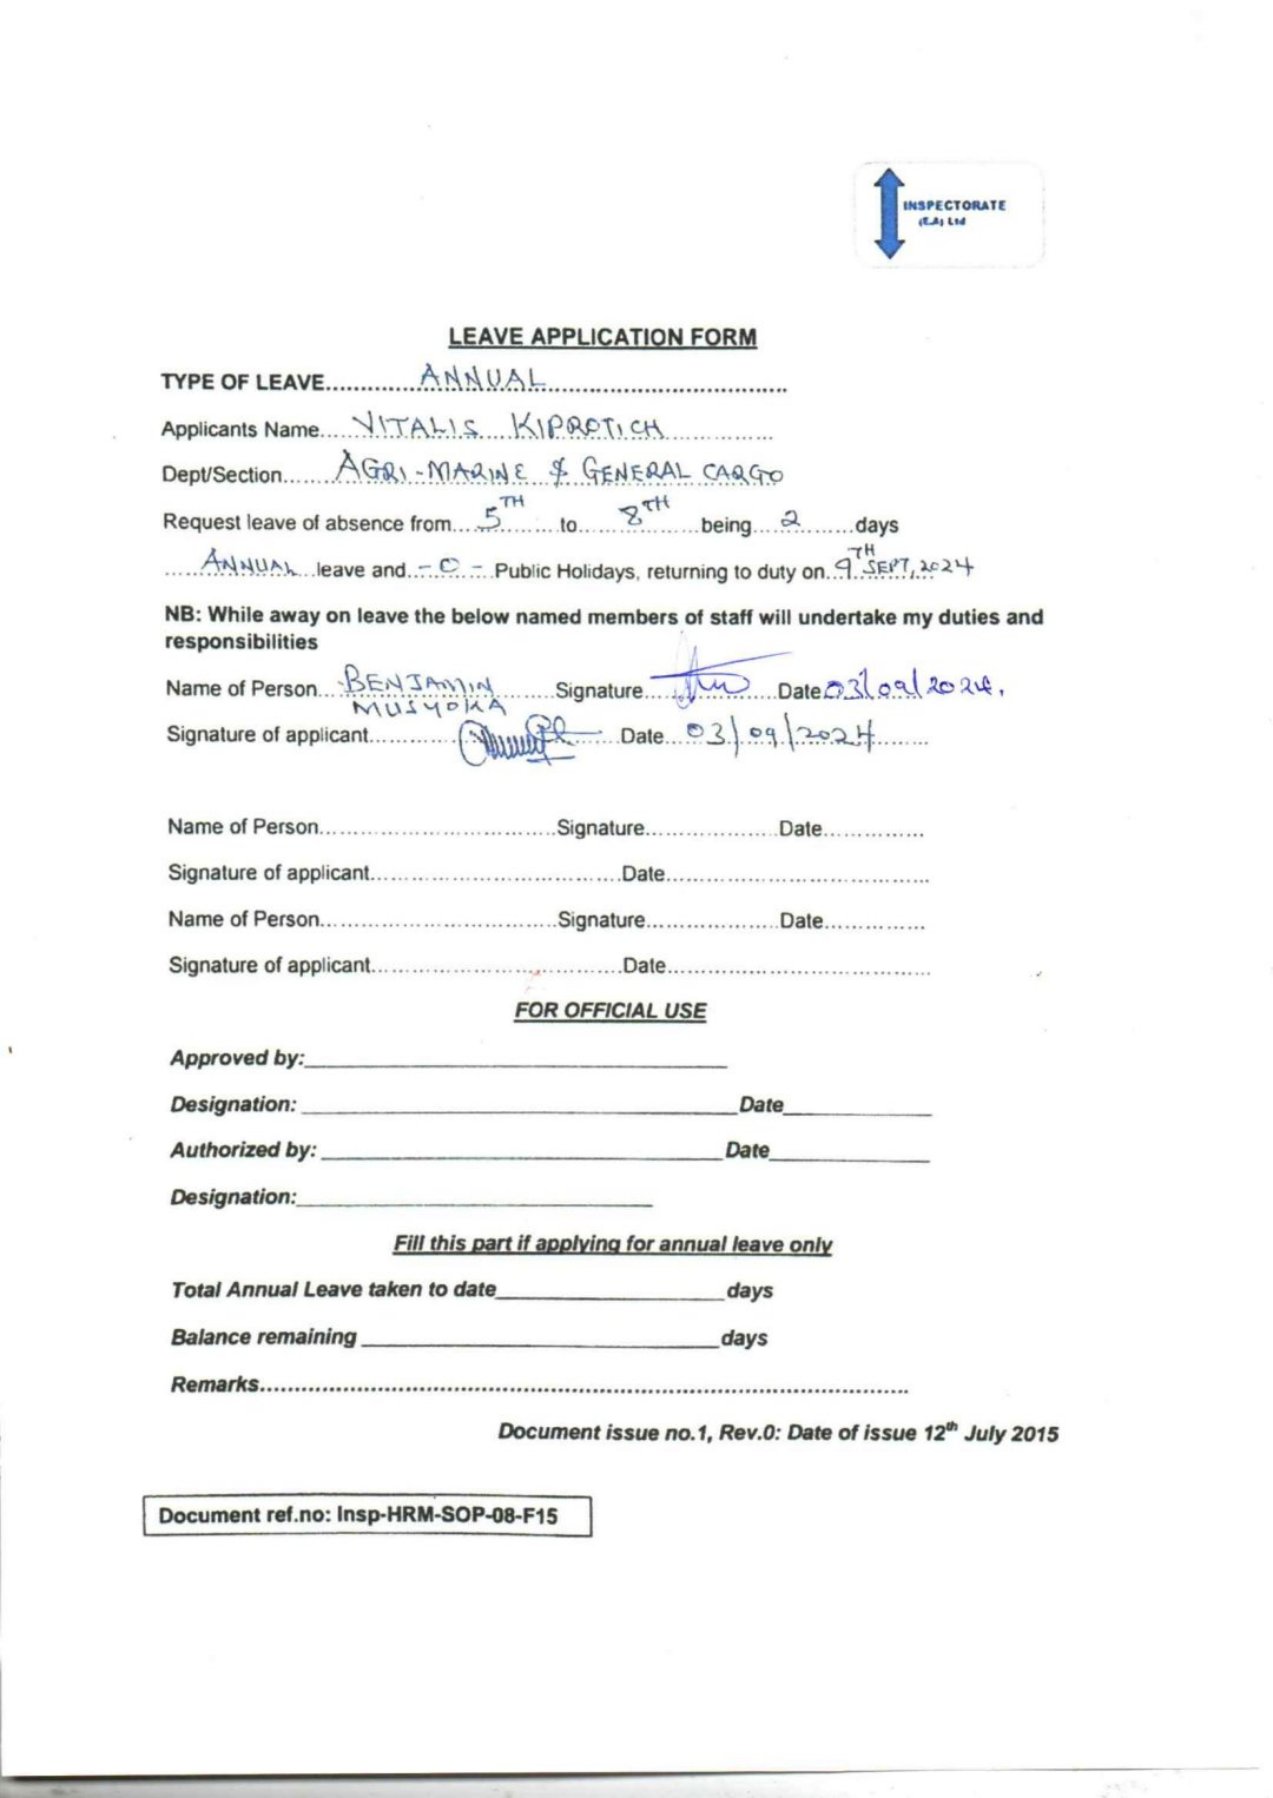 INSPECTORATE
(E.A) Ltd
LEAVE APPLICATION FORM
TYPE OF LEAVE............ANNUAL....................................
Applicants Name....VITALIS KIPROTICH................
Dept/Section.......AGRI-MARINE & GENERAL CARGO
Request leave of absence from....5TH.........to......8TH........being....2........days
.....ANNUAL...leave and..- 0 -..Public Holidays, returning to duty on..9TH SEPT, 2024
NB: While away on leave the below named members of staff will undertake my duties and
responsibilities
Name of Person...BENJAMIN MUSYOKA.........Signature....................Date 03/09/2024.
Signature of applicant....................................Date...03/09/2024........
Name of Person...................................Signature....................Date...............
Signature of applicant.....................................Date.......................................
Name of Person...................................Signature....................Date...............
Signature of applicant.....................................Date.......................................
FOR OFFICIAL USE
Approved by:______________________________
Designation: ______________________________Date___________
Authorized by: ____________________________Date____________
Designation:_________________________
Fill this part if applying for annual leave only
Total Annual Leave taken to date________________days
Balance remaining _________________________days
Remarks..............................................................................................
Document issue no.1, Rev.0: Date of issue 12th July 2015
Document ref.no: Insp-HRM-SOP-08-F15